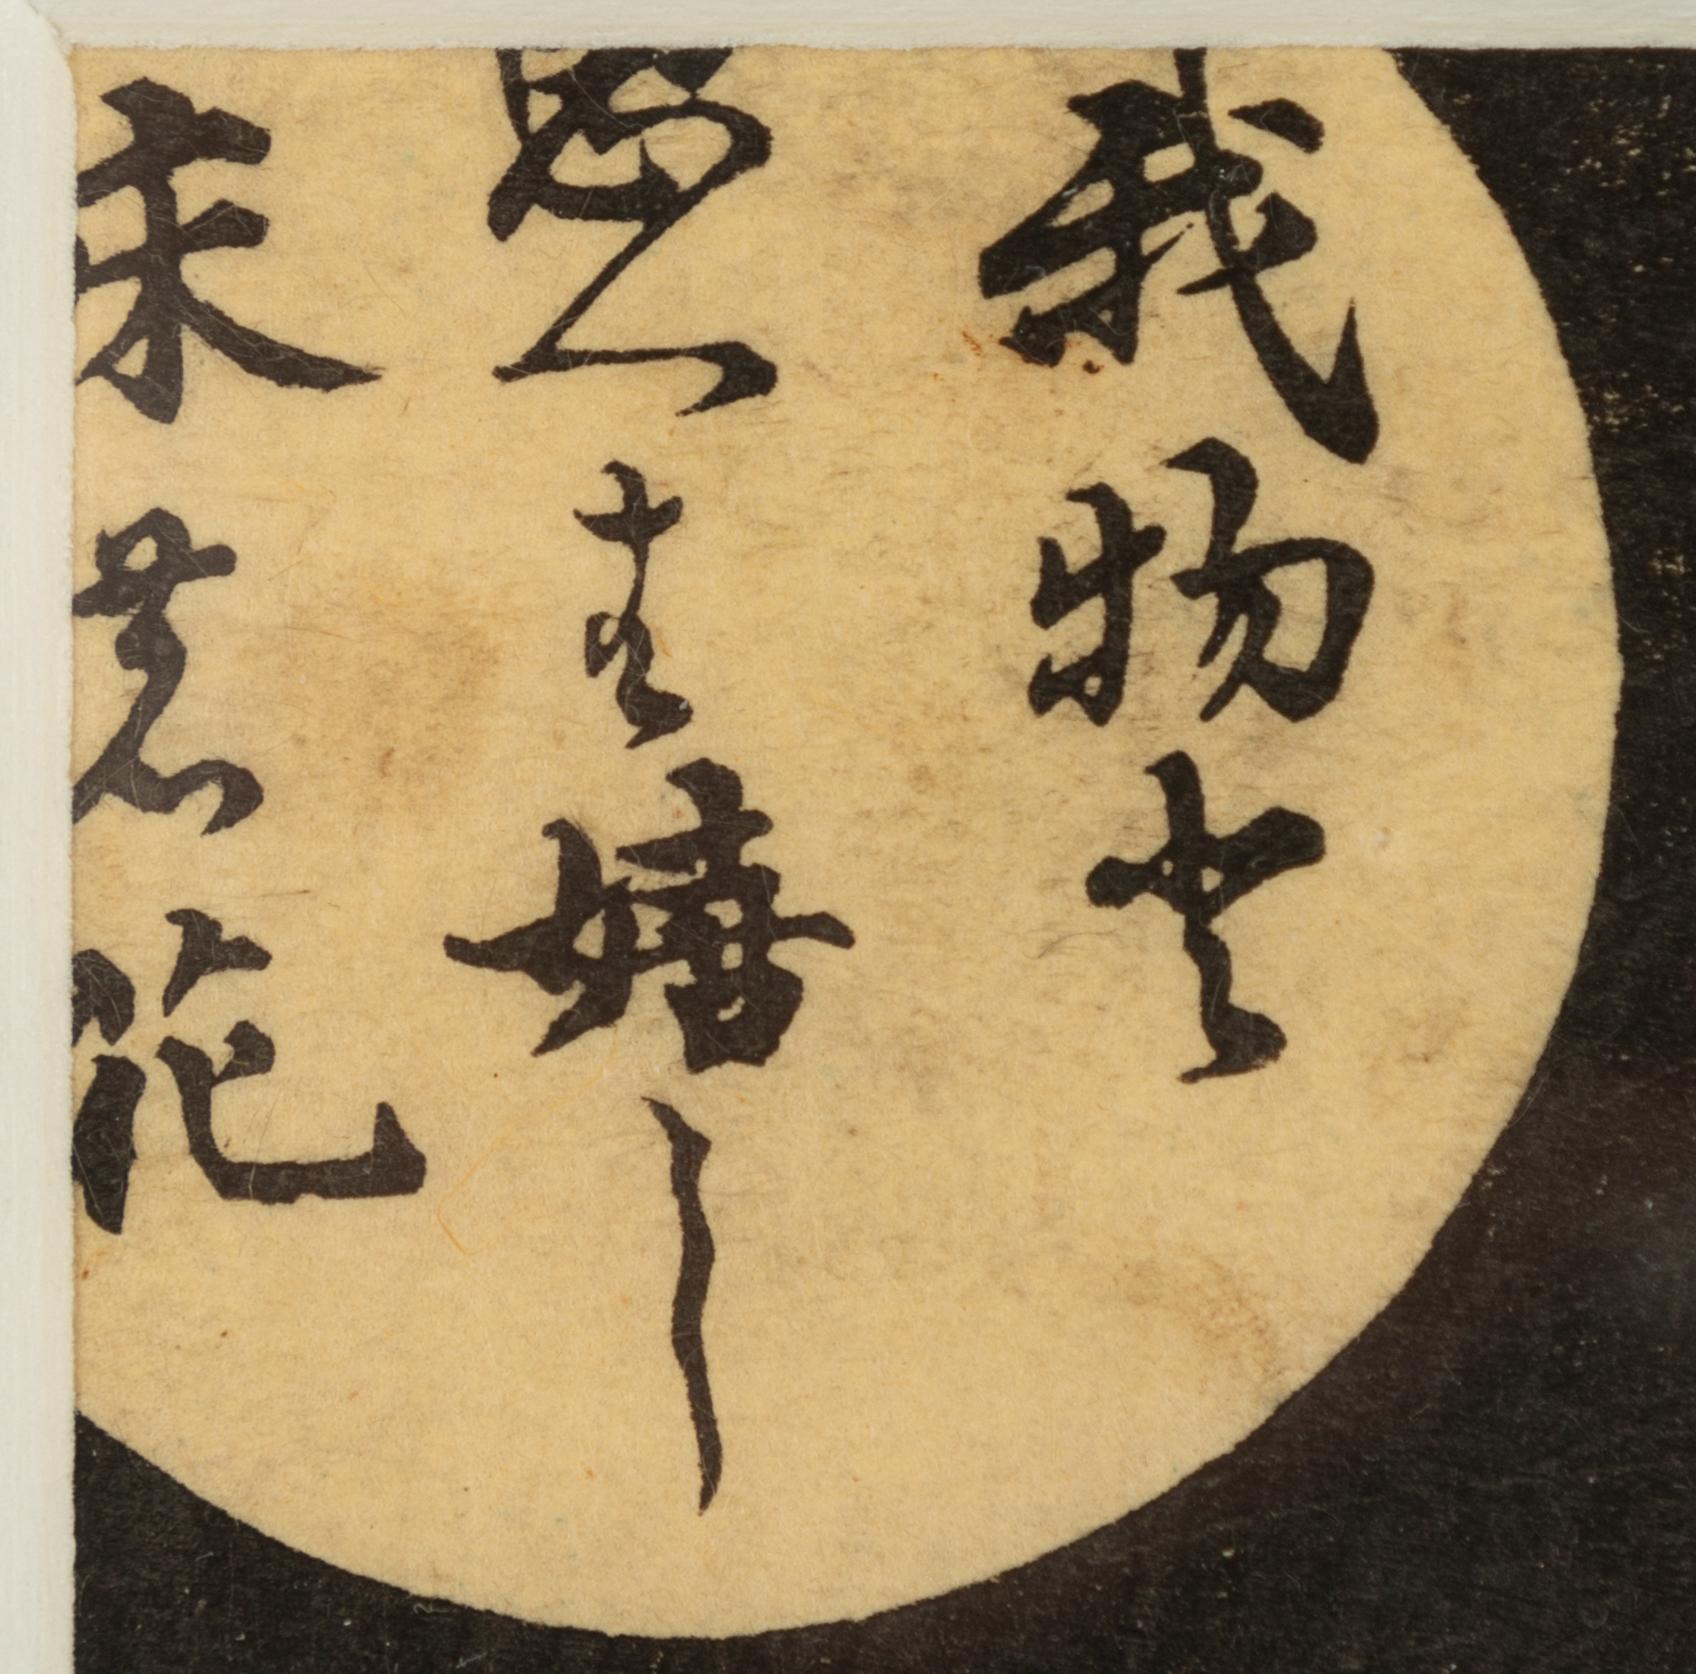 我物と
思へは嬉し
床